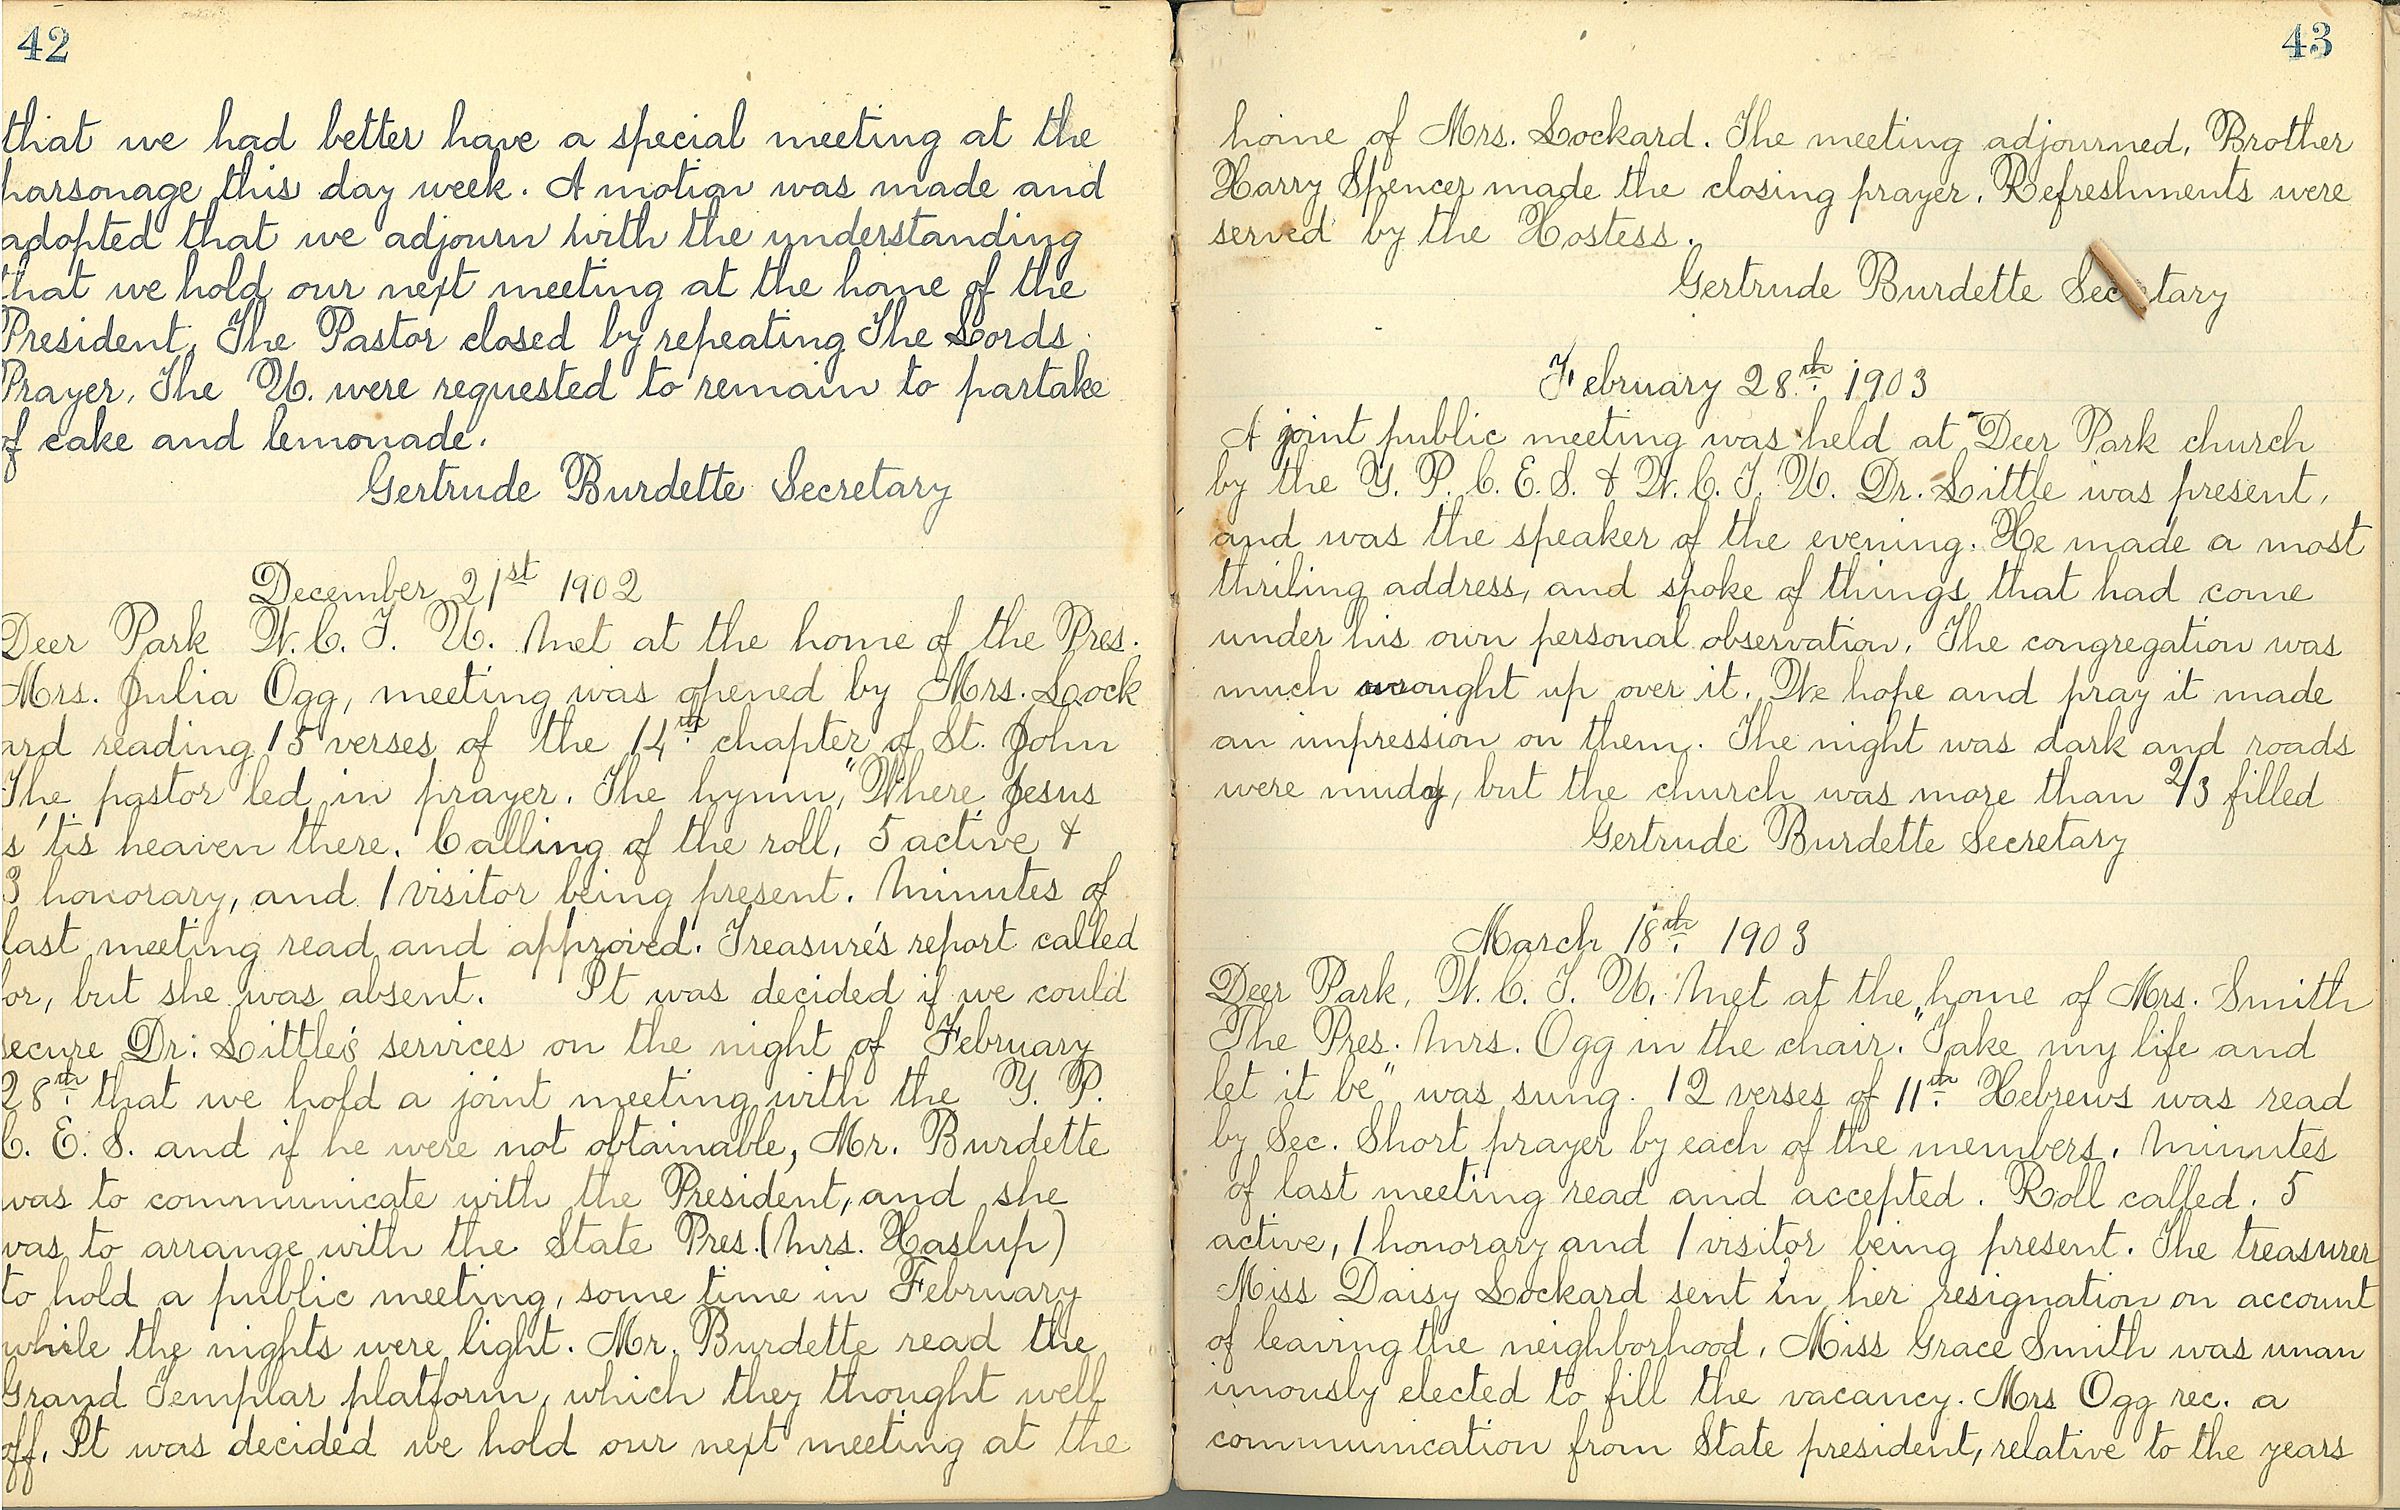 42
that we had better have a special meeting at the
parsonage this day week. A motion was made and
adopted that we adjourn with the understanding
that we hold our next meeting at the home of the
President. The Pastor closed by repeating The Lords
Prayer, The U. were requested to remain to partake
of cake and lemonade.
Gertrude Burdette Secretary
December 21st 1902
Deer Park W. C. T. U. Met at the home of the Pres.
Mrs. Julia Ogg, meeting was opened by Mrs. Lock
ard reading 15 verses of the 14th chapter of St. John
The pastor led in prayer. The hymn, "Where Jesus
is 'tis heaven there. Calling of the roll, 5 active &
3 honorary, and 1 visitor being present. Minutes of
last meeting read and approved. Treasure's report called
for, but she was absent. It was decided if we could
secure Dr. Little's services on the night of February
28th that we hold a joint meeting with the Y. P.
C. E. S. and if he were not obtainable, Mr. Burdette
was to communicate with the President, and she
was to arrange with the State Pres. (Mrs. Haslup)
to hold a public meeting, some time in February
while the nights were light. Mr. Burdette read the
Grand Templar platform, which they thought well
off. It was decided we hold our next meeting at the
43
home of Mrs. Lockard. The meeting adjourned, Brother
Harry Spencer made the closing prayer. Refreshments were
served by the Hostess.
Gertrude Burdette Secretary
February 28th 1903
A joint public meeting was held at Deer Park church
by the Y. P. C. E. S. & W. C. T. U. Dr. Little was present,
and was the speaker of the evening. He made a most
thriling address, and spoke of things that had come
under his own personal observation. The congregation was
much wrought up over it. We hope and pray it made
an impression on them. The night was dark and roads
were mudy, but the church was more than 2/3 filled
Gertrude Burdette Secretary
March 18th 1903
Deer Park, W. C. T. U. Met at the home of Mrs. Smith
The Pres. Mrs. Ogg in the chair. "Take my life and
let it be" was sung. 12 verses of 11th Hebrews was read
by Sec. Short prayer by each of the members. Minutes
of last meeting read and accepted. Roll called. 5
active, 1 honorary and 1 visitor being present. The treasurer
Miss Daisy Lockard sent in her resignation on account
of leaving the neighborhood, Miss Grace Smith was unan
imously elected to fill the vacancy. Mrs Ogg rec. a
communication from State president, relative to the years